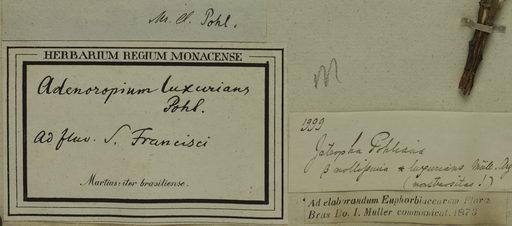 M. Cl. Pohl.
HERBARIUM REGIUM MONACENSE
Adenoropium luxurians
Pohl.
Ad fluv. S. Francisci
Martius: iter brasiliense.
M
1999
Jatropha Pohliana
β mollissima * luxurians Müll. Arg
Ad elaborandum Euphorbiacearum Florae
Bras Do. I. Müller communicat. 1873